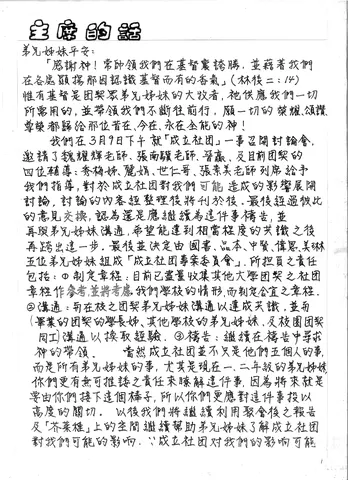 主席的話
弟兄姊妹平安:
「感謝神!常帥領我們在基督裏誇勝,並藉著我們
在各處顯揚那因認識基督而有的香氣」(林後二:14)
惟有基督是团契眾弟兄姊妹的大牧者,祂供應我們一切
所需用的,並帶領我們不斷往前行,願一切的榮耀、頌讚、
尊榮都歸給那位昔在、今在、永在全能的神!
我們在3月9日下午就「成立社团」一事召開討論會,
邀請了魏耀輝老師、張南驥老師、晉嬴、及目前团契的
四位輔導:秀梅姊、麗娟、世仁哥、張素美老師列席給予
我們指導,對於成立社团對我們可能造成的影響展開
討論,討論的內容經整理後將刊於后。最後經過彼此
的意見交換,認為還是應繼續為這件事禱告,並
再與弟兄姊妹溝通,希望能達到相當程度的共識之後
再踏出進一步。最後並決定由國書、品禾、中賢、偉恩、美琳
五位弟兄姊妹組成「成立社团專案委員會」,所担負之責任
包括:①制定章程:目前已盡量收集其他大學团契之社团
章程作參考,並將考慮我們學校的情形,而制定合宜之章程。
②溝通:与在校之团契弟兄姊妹溝通以達成共識,並与
(畢業的团契的學長姊、其他學校的弟兄姊妹、及校園团契
同工)溝通以換取經驗。③禱告:繼續在禱告中尋求
神的帶領。 當然成立社团並不只是他們五個人的事,
而是所有弟兄姊妹的事,尤其是現在一、二年級的弟兄姊妹,
你們更有無可推諉之責任來瞭解這件事,因為將來就是
要由你們接下這個棒子,所以你們更應對這件事投以
高度的關切。以後我們將繼續利用聚會後之報告
及「芥菜種」上的空間繼續幫助弟兄姊妹了解成立社团
對我們可能的影响。∵成立社团對我們的影响可能